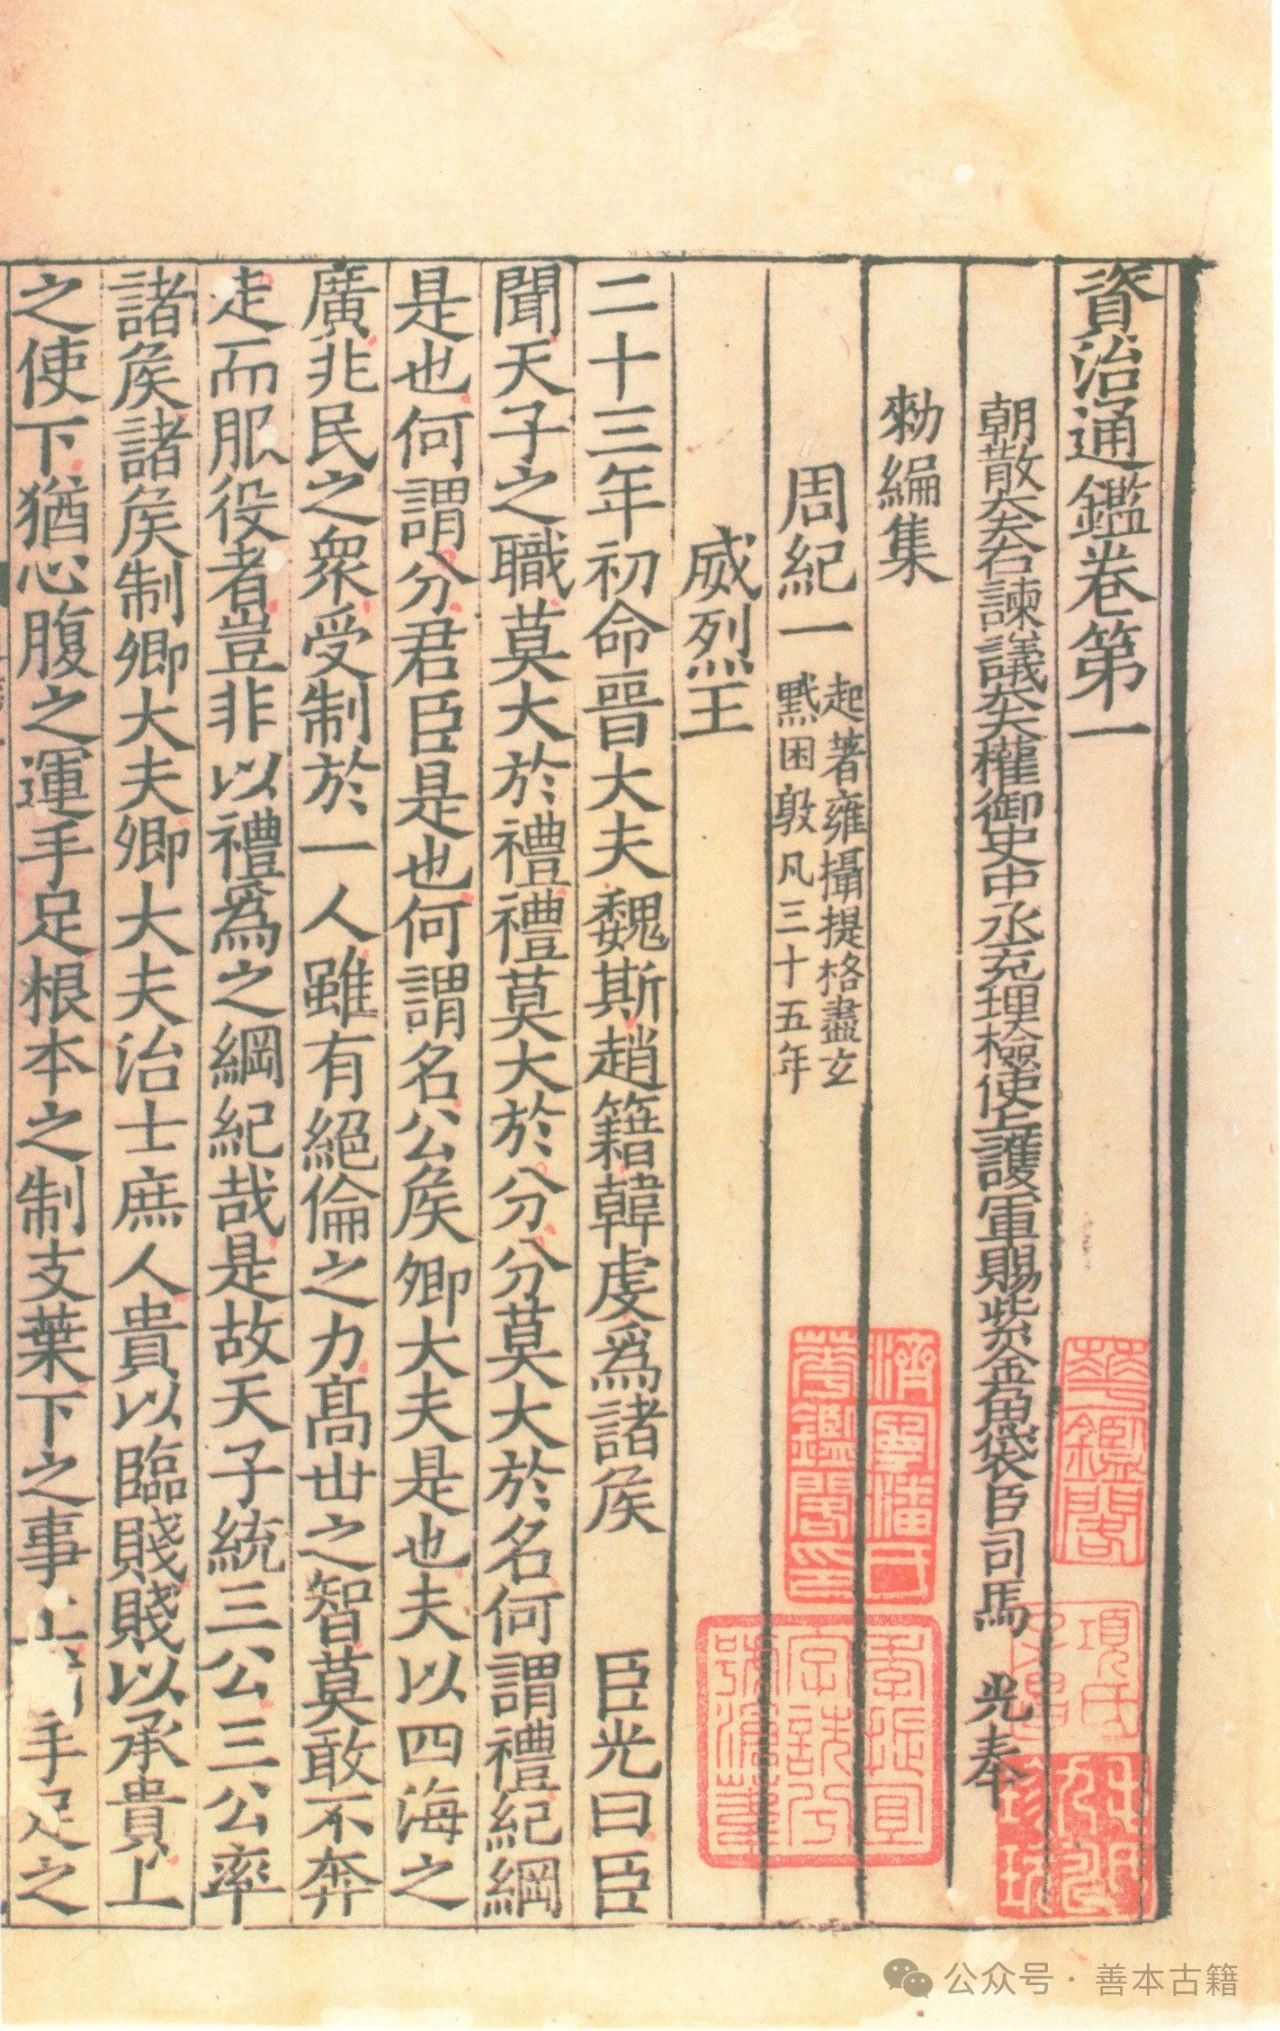 資治通鑑卷第一
朝散大夫右諫議大夫權御史中丞充理檢使上護軍賜紫金魚袋臣司馬 光奉
勑編集
周紀一 起著雍攝提格盡玄
黓困敦凡三十五年
威烈王
二十三年初命晉大夫魏斯趙籍韓虔爲諸侯 臣光曰臣
聞天子之職莫大於禮禮莫大於分分莫大於名何謂禮紀綱
是也何謂分君臣是也何謂名公侯卿大夫是也夫以四海之
廣兆民之衆受制於一人雖有絕倫之力高世之智莫敢不奔
走而服役者豈非以禮爲之綱紀哉是故天子統三公三公率
諸侯諸侯制卿大夫卿大夫治士庶人貴以臨賤賤以承貴上
之使下猶心腹之運手足根本之制支葉下之事上 手足之
華鑑閣
項氏
濟寧潘氏
華鑑閣印
季振宜
字詵兮
號滄葦
公众号·善本古籍